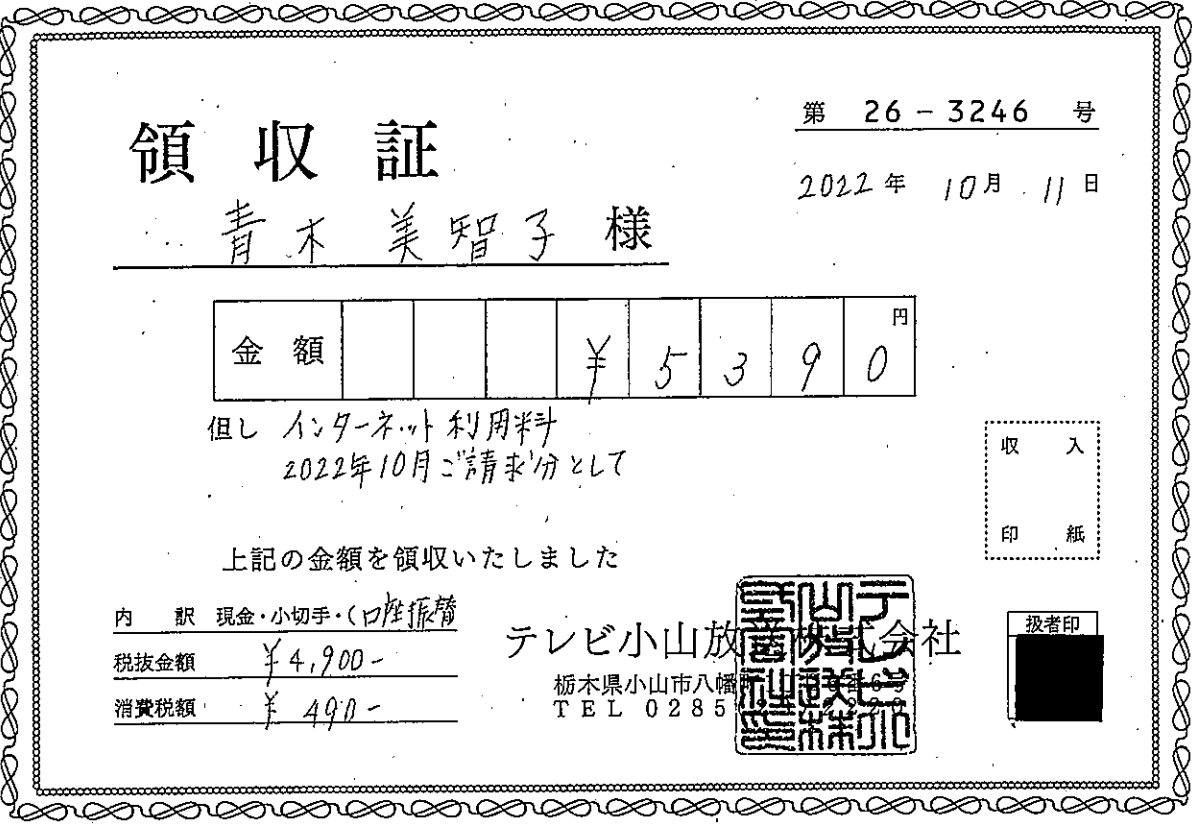 第 26-3246 号
領収証
2022年 10月 11日
青木 美智子 様
金額 ¥5390円
但し インターネット利用料
2022年10月ご請求分として
収入
印紙
上記の金額を領収いたしました
内訳 現金・小切手・(口座振替
税抜金額 ¥4,900-
消費税額 ¥490-
テレビ小山放送株式会社
栃木県小山市八幡
TEL 0285
扱者印